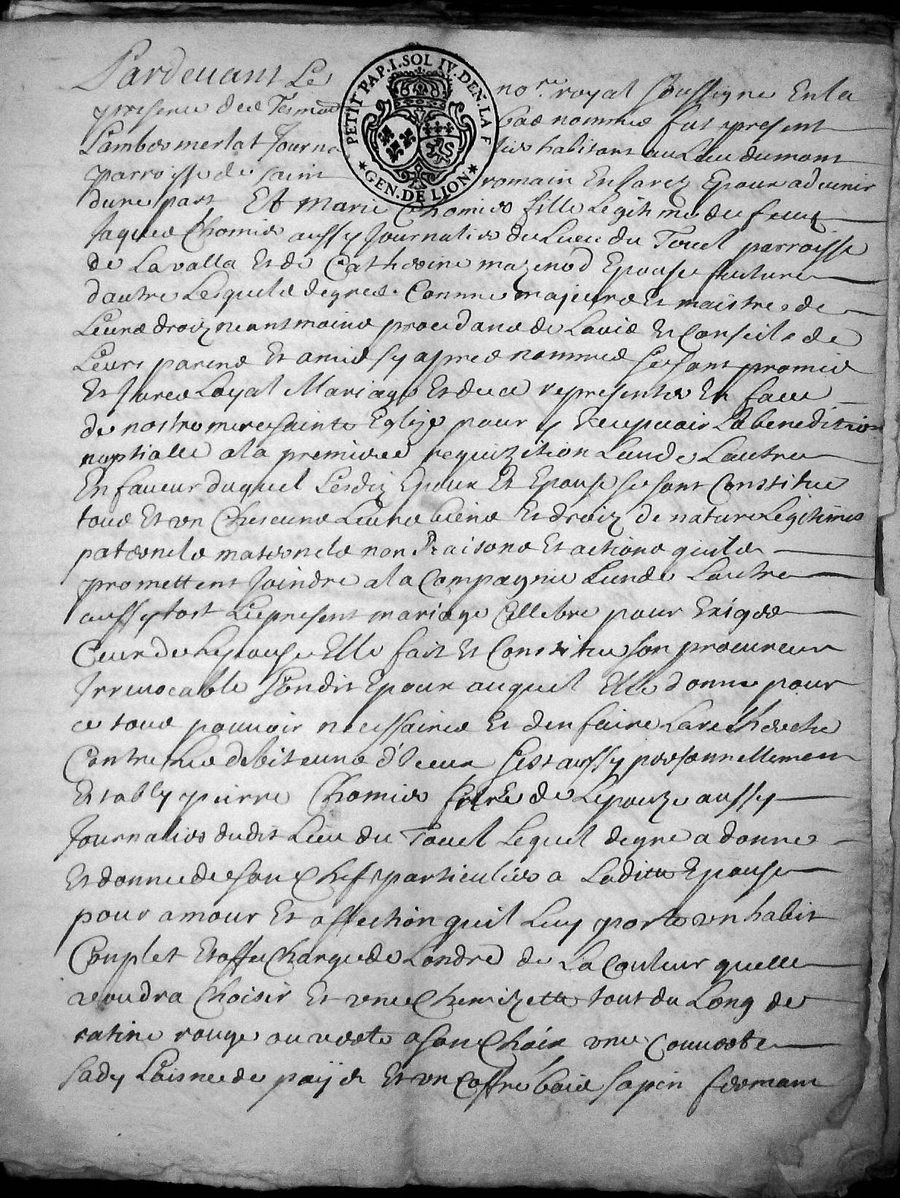 Pardevant Le no.re royal soussigne En la
PETIT PAP. I. SOL IV. DEN. LA F
GEN. DE LION
presence des Tesmo bas nommes fut present
Lambermerlat Journa liers habitant au Lieu dumont
parroisse de saint romain En Jarez Epoux advenir
dune part Et Marie Chomier fille Legitime de feuz
Jaques Chomier aussy Journalier du Lieu du Toueil parroisse
de Lavalla Et de Catherine mazenod Epouse future
dautre Lesquels degres Comme majeurs Et maistres de
Leurs droiz neantmoins procedans de Lavis Et Conseils de
Leurs parens Et amis sy apres nommes se sont promis
Et Jures Loyal Mariage Et de ce representer En face
de nostre mere sainte Eglize pour y Recepvoir La benedition
nuptialle a la premiere requizition Lun de Lautre
En faveur duquel Lesdiz Epoux Et Epouse se sont Constitue
tous Et un Chescuns Leurs biens Et droiz de nature Legitimes
paternels maternels non Raisons Et actions quils
promettent Joindre a la Compagnie Lun de Lautre
aussytost Le present mariage Cellebre pour Exiger
Ceux de Lepouse Elle fait Et Constitue son procureur
Irrevocable Sondit Epoux auquel Elle donne pour
ce tous pouvoir necessaires Et den faire La recherche
Contre Les debiteurs d'Iceux Sest aussy personnellement
Estably pierre Chomier frere de Lepouze aussy
Journalier dudit Lieu du Toueil Lequel degre a donne
Et donne de son Chef particulier a Laditte Epouse
pour amour Et affection quil Luy porte un habit
Couplet Etoffe Charge de Londre de La Couleur quelle
voudra Choisir Et une Chemizette tout du Long de
ratine rouge ou verte a son Choix une Couverte
Sady Laisne de paÿs Et un Coffre bois sapin fermant